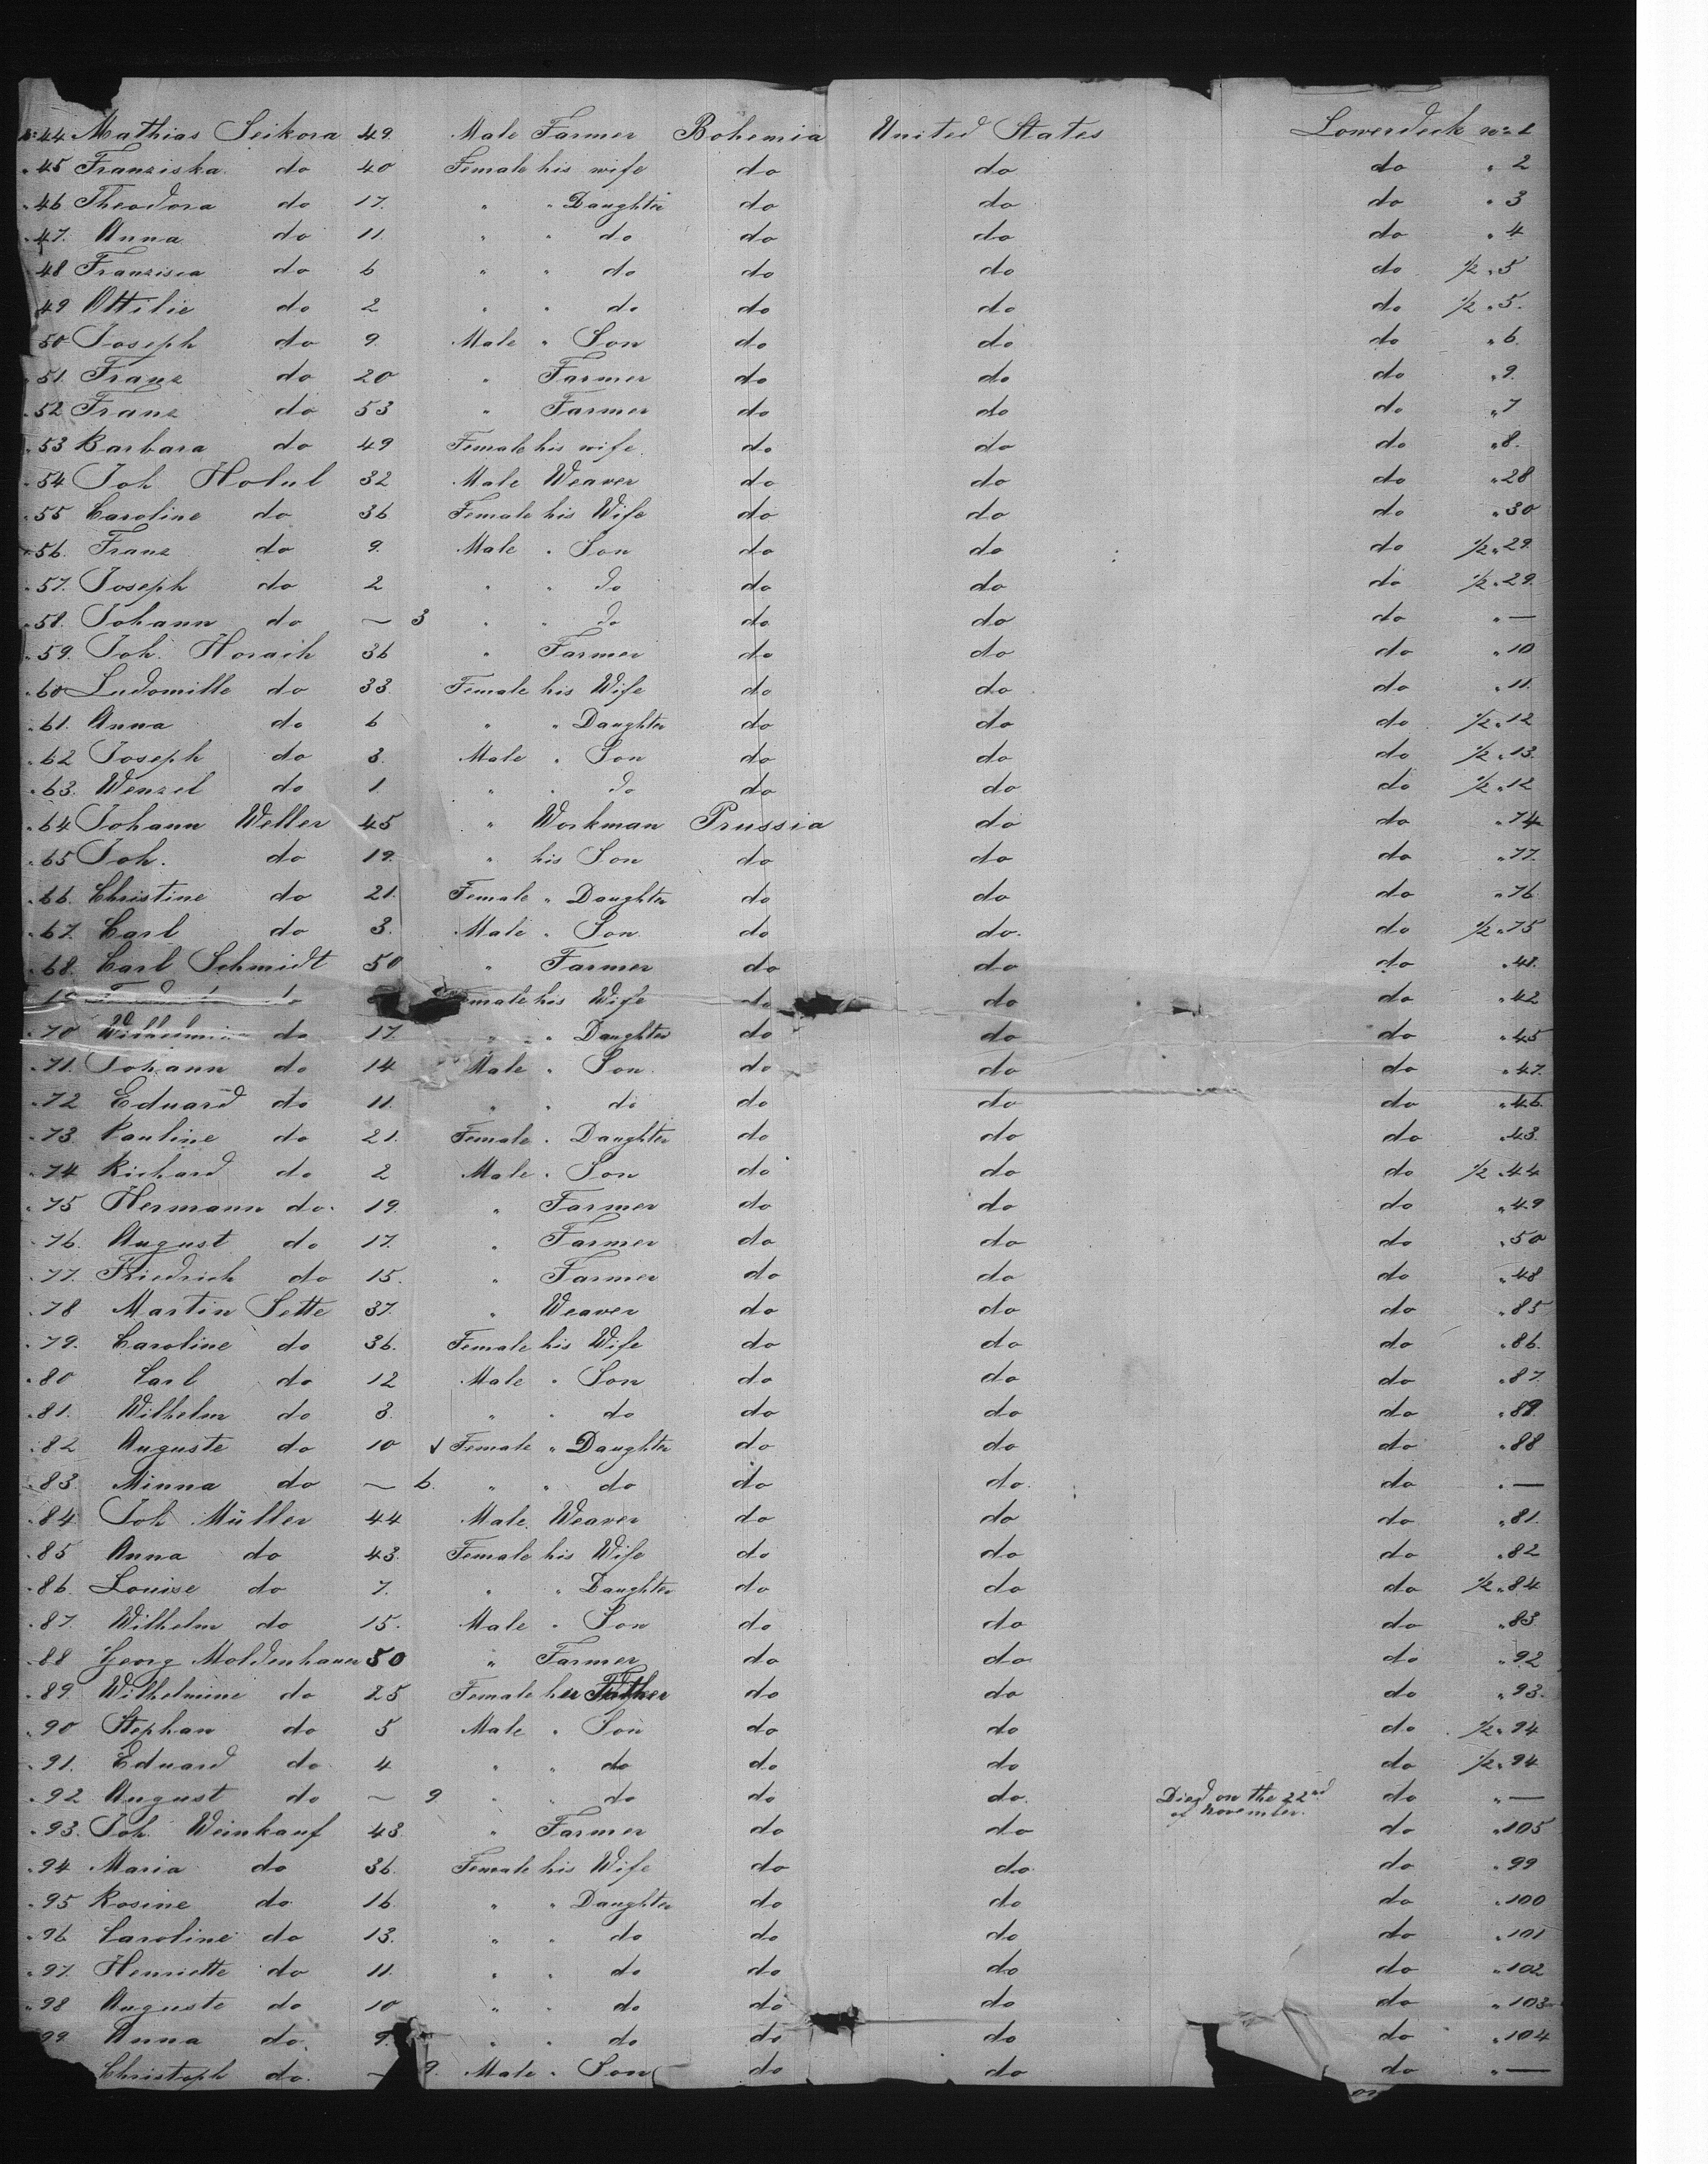 № 44 Mathias Seikora 49 Male Farmer Bohemia United States Lowerdeck № 1
" 45 Franziska do 40 Female his wife do do do " 2
" 46 Theodora do 17. " " Daughter do do do " 3
" 47. Anna do 11. " " do do do do " 4
48 Franzisca do 6 " " do do do do 1/2 " 5
49 Ottilie do 2 " " do do do do 1/2 " 5.
50 Joseph do 9. Male " Son do do do " 6.
" 51. Franz do 20 " Farmer do do do " 9.
" 52 Franz do 53 " Farmer do do do " 7
" 53 Barbara do 49 Female his wife. do do do " 8.
" 54 Joh Holul 32 Male Weaver do do do " 28
" 55 Caroline do 36 Female his Wife do do do " 30
" 56. Franz do 9. Male " Son do do do 1/2 " 29.
" 57. Joseph do 2 " " do do do do 1/2 " 29.
" 58. Johann do — 3 " " do do do do " —
" 59. Joh. Horaih 36 " Farmer do do do " 10
" 60 Ludomille do 33. Female his Wife do do do " 11.
" 61. Anna do 6 " " Daughter do do do 1/2 " 12
" 62 Joseph do 3. Male " Son do do do 1/2 " 13.
" 63. Wenzel do 1. " " do do do do 1/2 " 12
" 64 Johann Weller 45 " Workman Prussia do do " 74
" 65 Joh. do 19. " his Son do do do " 77.
" 66. Christine do 21. Female " Daughter do do do " 76
" 67. Carl do 3. Male " Son do do. do 1/2 " 75
" 68. Carl Schmidt 50 " Farmer do do do " 41.
do Female his Wife do do do " 42
" 70 Wilhelmine do 17. " " Daughter do do do " 45
" 71. Johann do 14 Male " Son. do do do " 47.
" 72 Eduard do 11. " " do do do do " 46.
" 73. Pauline do 21. Female " Daughter do do do " 43.
" 74 Richard do 2 Male " Son do do do 1/2 " 44
" 75 Hermann do. 19. " Farmer do do do " 49
" 76. August do 17. " Farmer do do do " 50
" 77. Friedrich do 15. " Farmer do do do " 48
" 78 Martin Sette 37. " Weaver do do do " 85
" 79. Caroline do 36. Female his Wife do do do " 86.
" 80 Carl do 12 Male " Son do do do " 87.
" 81. Wilhelm do 3. " " do do do do " 89.
" 82 Auguste do 10 Female " Daughter do do do " 88
" 83 Minna do — 6. " " do do do. do " —
" 84 Joh Müller 44 Male. Weaver do do do " 81.
" 85 Anna do 43. Female his Wife do do do " 82
" 86. Louise do 7. " " Daughter do do do 1/2 " 84
" 87. Wilhelm do 15. Male " Son do do do " 83
" 88 Georg Moldenhauer 50 " Farmer do do do " 92
" 89. Wilhelmine do 25 Female her Father do do do " 93.
" 90 Stephan do 5 Male " Son do do do 1/2 " 94
" 91. Eduard do 4 " " do do do do 1/2 " 94
" 92 August do — 9 " " do do do. Died on the 22nd do " —
of November.
" 93. Joh. Weinkauf 43 " Farmer do do do " 105
" 94 Maria do 36. Female his Wife do do do " 99
" 95 Rosine do 16. " " Daughter do do do " 100
" 96 Caroline do 13. " " do do do do " 101
" 97. Henriette do 11. " " do do do do " 102
" 98 Auguste do 10 " " do do do do " 103
99 Anna do. 9. " " do do do do " 104
Christoph do. — 9. Male " Son do do do " —